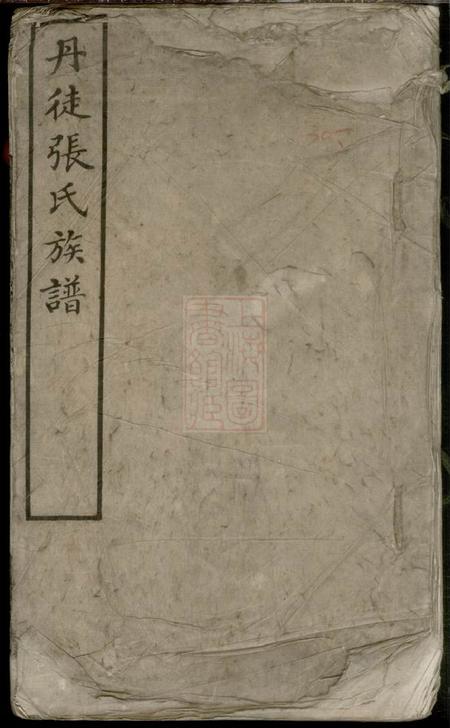 丹徒張氏族譜
上海圖
書館藏